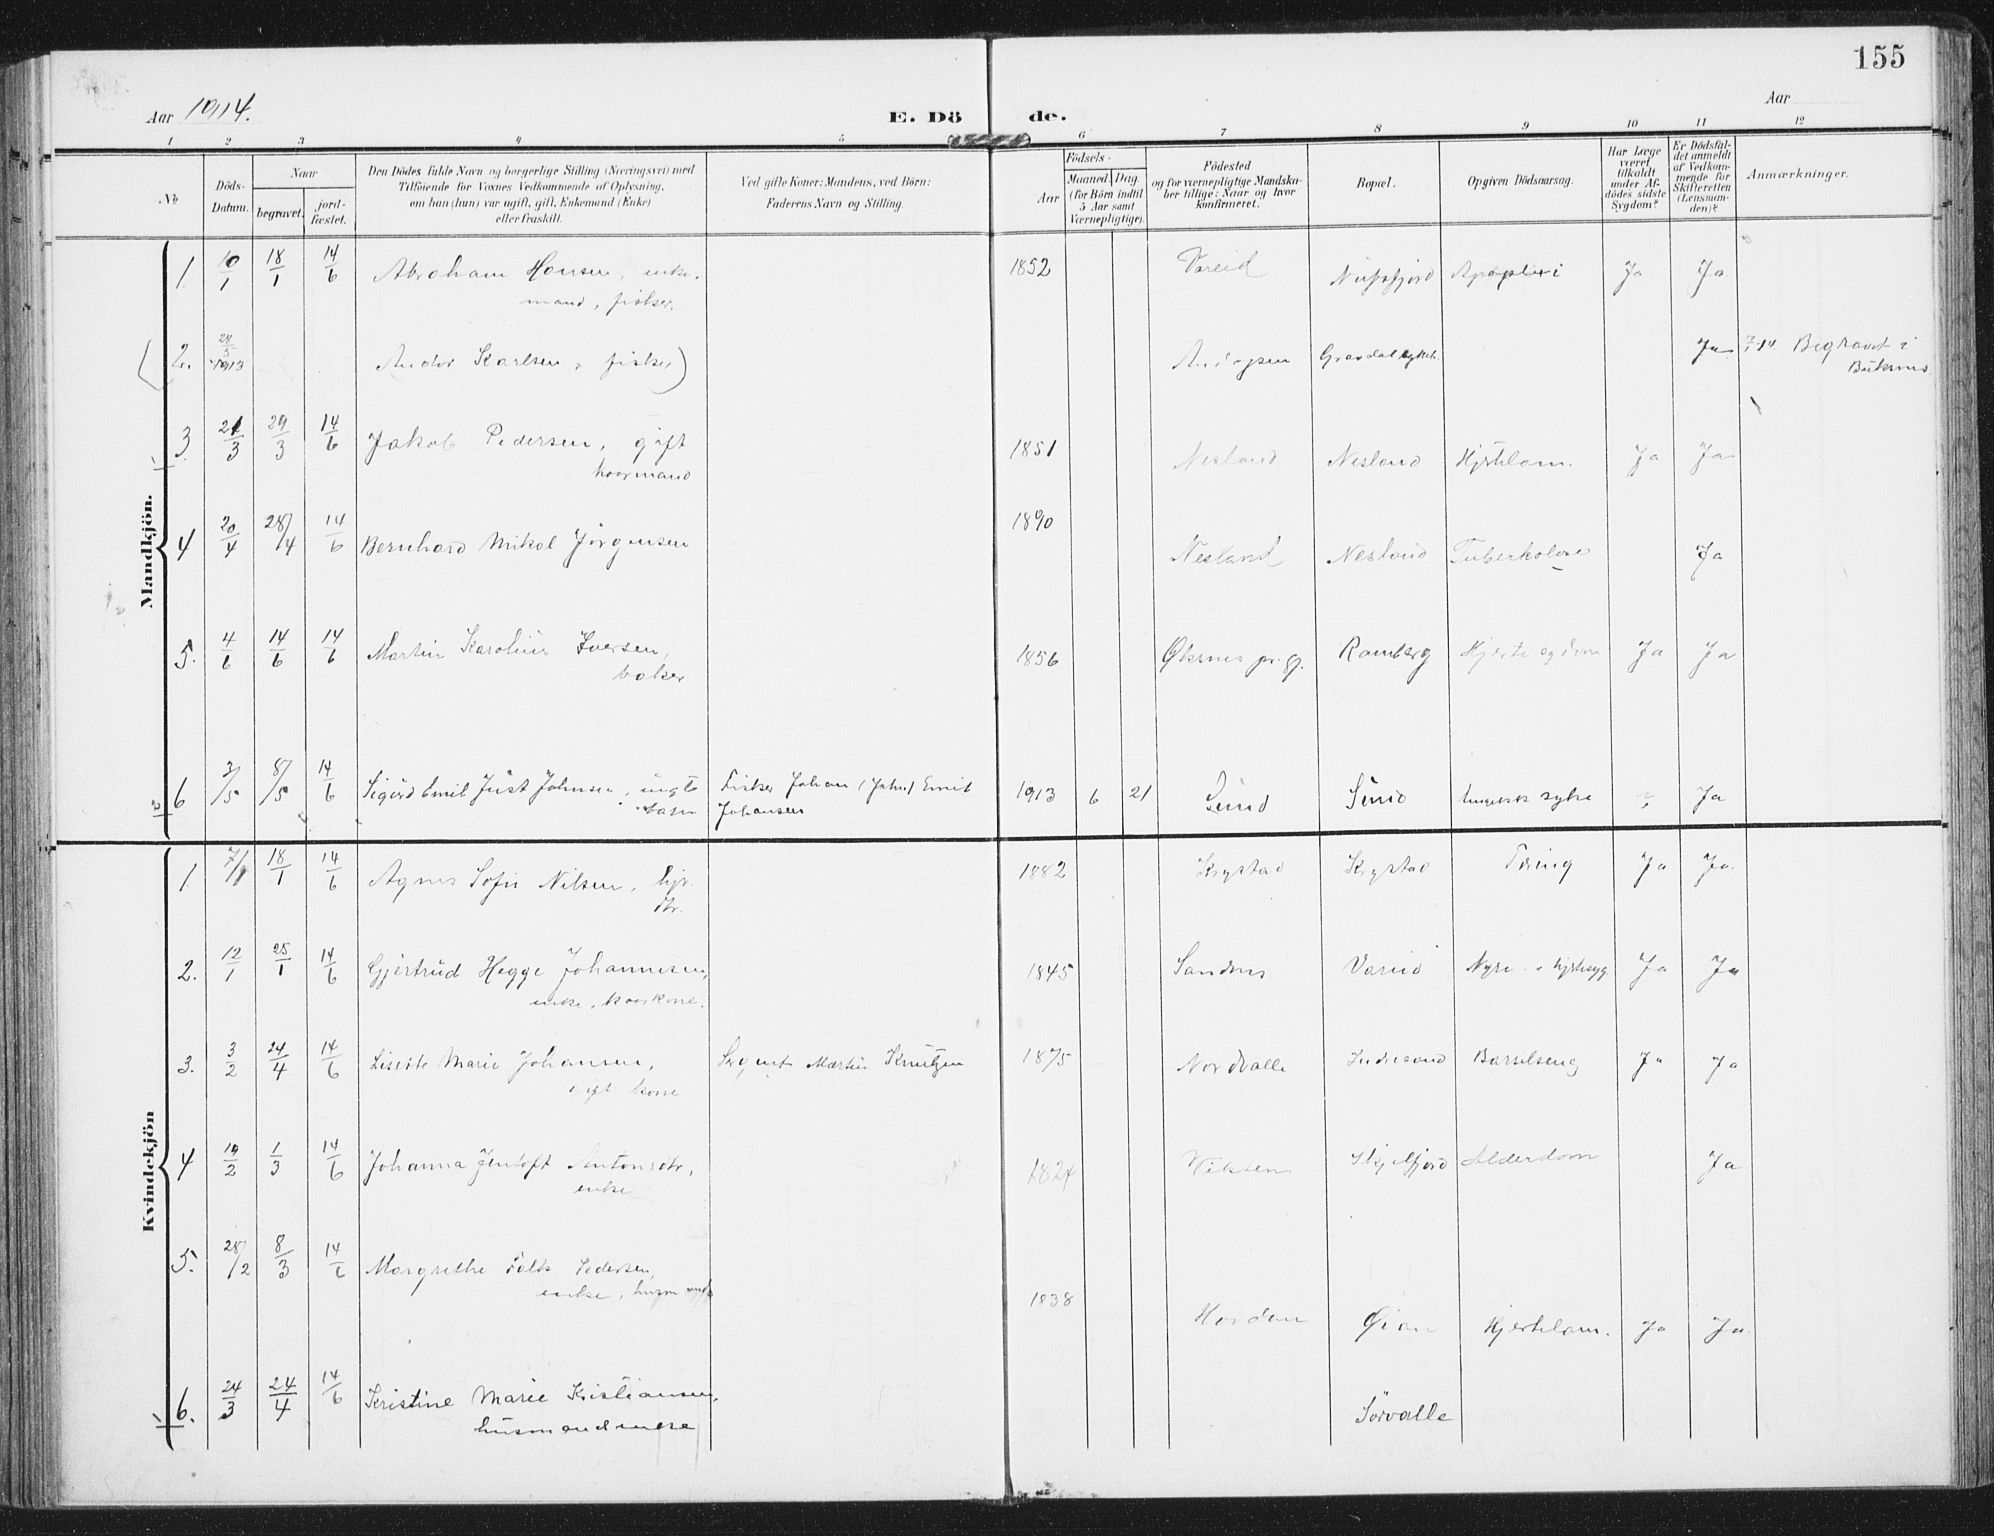 155
Aar 1914.
E. Dö de.
Aar
1 2 3 4 5 6 7 8 9 10 11 12
No
Döds-Datum.
Naar
begravet.
jord-fæstet.
Den Dödes fulde Navn og borgerlige Stilling (Næringsvei) med
Tilföiende for Voxnes Vedkommende af Oplysning,
om han (hun) var ugift, gift, Enkemand (Enke)
eller fraskilt.
Ved gifte Koner: Mandens, ved Börn:
Faderens Navn og Stilling.
Födsels-
Aar
Maaned. Dag
(for Börn indtil
5 Aar samt
Værnepligtige).
Födested
og for værnepligtige Mandska-
ber tillige: Naar og hvor
konfirmeret.
Bopæl.
Opgiven Dödsaarsag.
Har Læge
været
tilkaldt
under Af-
dödes sidste
Sygdom?
Er Dödsfal-
det anmeldt
af Vedkom-
mende for
Skifteretten
(Lensman-
den)?
Anmærkninger.
Mandkjön.
1. 10/1 18/1 14/6 Abraham Hansen, enke- 1852 Vareid Nusfjord Apoplexi Ja Ja
mand, fisker.
(2. 28/5 1913 Andor Karlsen, fisker) Gravdal sykeh. Ja 14 Begravet i
Buksnes.
3. 21/3 29/3 14/6 Jakob Pedersen, gift 1851 Nesland Nesland Hjertelam. Ja Ja
kaarmand
4 20/4 28/4 14/6 Bernhard Mikal Jörgensen 1890 Nesland Nesland Tuberkolose Ja
5. 4/6 14/6 14/6 Martin Karolius Iversen, 1856 Øksnes pr.gj. Ramberg Hjertesygdom Ja Ja
6 3/5 8/5 14/6 Sigurd Emil Just Johnsen, uegte Fisker Johan (John) Emil 1913 6 21 Sund Sund syke ? Ja
barn Johansen
Kvindekjön
1 7/1 18/1 14/6 Agnes Sofie Nilsen, 1882 Krystad Krystad Tæring Ja Ja.
2. 12/1 25/1 14/6 Gjertrud Hegge Johannesen, 1845 Sandnes Vareid Nyre- Ja Ja
enke, kaarkone.
3. 3/2 24/4 14/6 Lisette Marie Johansen, Sergent Martin Knutzen 1875 Nordvalle Indresand Barselseng Ja Ja
gift kone
4 19/2 1/3 14/6 Johanna Jentoft Antonsdtr, 1824 Skjelfjord Alderdom Ja
enke
5. 28/2 8/3 14/6 Margrethe Falk Pedersen,
enke, 1838 Hovdan Hjertelam. Ja Ja
6. 24/3 24/4 14/6 Kristine Marie Kristiansen, Sörvalle